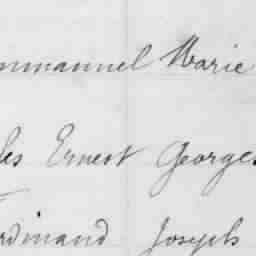 mmanuel Marie
les Ernest Georges
rdinand Joseph